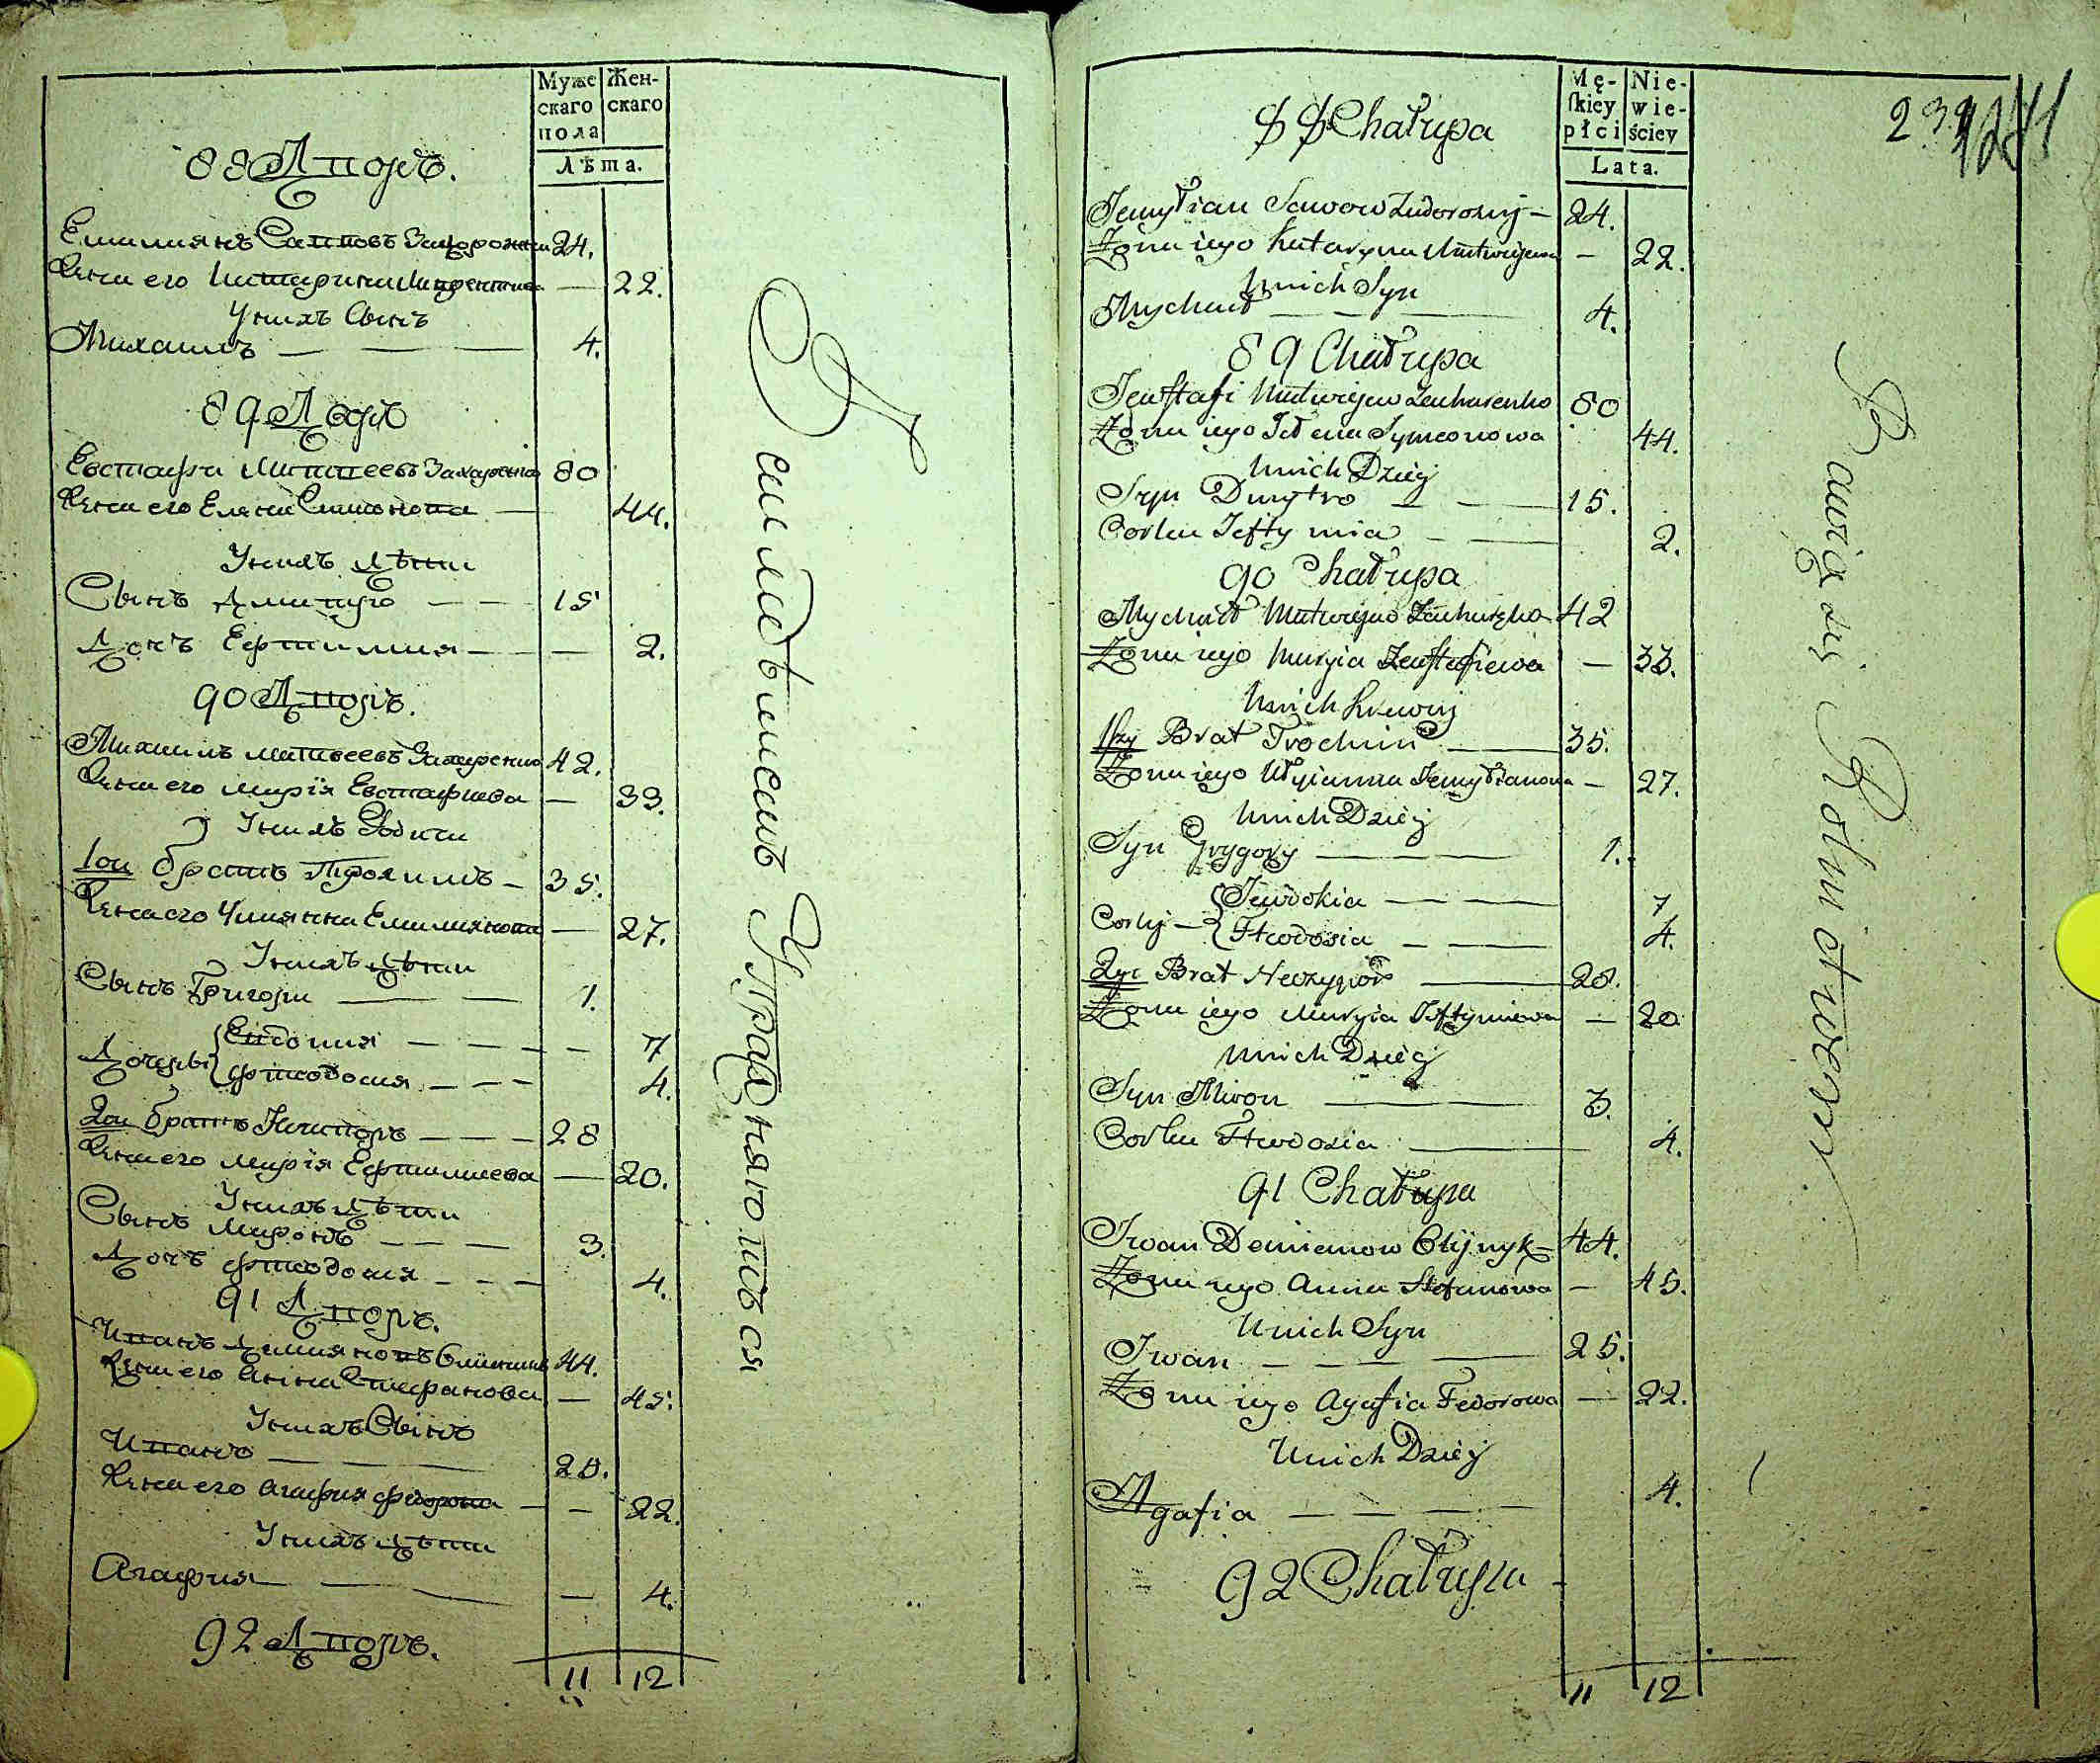 Муже
скаго
пола
Жен-
скаго
Лѣта.
88 Дворъ.
Емилиянъ Саввовъ 24.
Жена его Катарина Матвеева — 22.
У нихъ Сынъ
Михаилъ — — — 4.
89 Дворъ
Евстафи Матвеевъ Захаренко 80
Жена его Елена Симонова — 44.
У нихъ Дѣти
Сынъ Дмитро — — 15
Дочъ Ефтимия — — 2.
90 Дворъ.
Михаилъ Матвеевъ Захаренко 42.
Жена его Марiя Евстафиева — 33.
У нихъ
1ои братъ Трохимъ — 35.
Жена его Улиянна Емилиянова — 27.
У нихъ Дѣти
Сынъ Григори — — 1.
Дочери Евдокия — — — — 7
Ѳтеодосия — — — 4.
2ои братъ Ничипоръ — — — 28
Жена его Марiя Ефтимиева — 20.
У нихъ Дѣти
Сынъ Миронъ — — — 3.
Дочъ Ѳтеодосия — — — 4.
91 Дворъ.
Иванъ Демияновъ Олiиникъ 44.
Жена его Анна Стефанова — 45.
У нихъ Сынъ
Иванъ — — — 25.
Жена его Агафия Федорова — — 22.
У нихъ Дѣти
Агафия — — — 4.
92 Дворъ.
11 12
Земледѣлиемъ Упражняютъся
Mę-
skiey
płci
Nie-
wie-
ściey
Lata.
88 Chałupa
Jemylian Sawow 24.
Żona iego Kataryna Matwijewa — 22.
U nich Syn
Mychaił — — — 4.
89 Chałupa
Jewstafi Matwijew Zacharenko 80
Żona iego Jelena Symeonowa 44.
U nich Dzieci
Syn Dmytro — — 15.
Corka Jeftymia — — 2.
90 Chałupa
Mychaił Matwijew 42
Żona iego Maryia Jewstafiewa — 33.
U nich Krewni
1szy Brat Trochim — 35.
Żona iego Ulyianna Jemylianowa — 27.
U nich Dzieci
Syn Grygory — — — 1.
Corki — Jewdokia — — — 7
Fteodosia — — 4.
2gi Brat Neczypor — 28.
Żona iego Maryia Jeftymiewa — 20
U nich Dzieci
Syn Miron — 3.
Corka Fteodosia — 4.
91 Chałupa
Iwan Demianow Olijnyk — 44.
Żona iego Anna Stefanowa — 45.
U nich Syn
Iwan — — — 25.
Żona iego Agafia Fedorowa — 22.
U nich Dzieci
Agafia — — — — 4.
92 Chałupa
11 12
Bawią się Rolnictwem